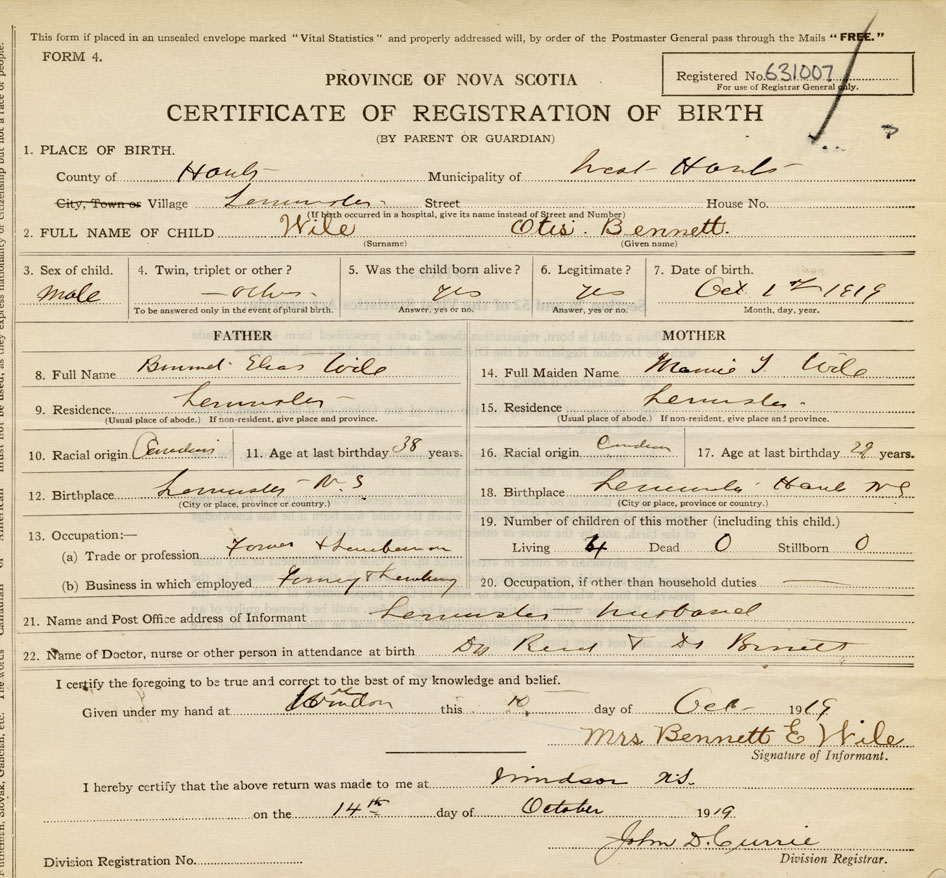 This form if placed in an unsealed envelope marked "Vital Statistics" and properly addressed will, by order of the Postmaster General pass through the Mails "FREE."
FORM 4.
Registered No. 631007
For use of Registrar General only.
PROVINCE OF NOVA SCOTIA
CERTIFICATE OF REGISTRATION OF BIRTH
(BY PARENT OR GUARDIAN)
1. PLACE OF BIRTH.
County of Hants Municipality of West Hants
City, Town or Village Street House No.
(If birth occurred in a hospital, give its name instead of Street and Number)
2. FULL NAME OF CHILD Wile Otis. Bennett.
(Surname) (Given name)
3. Sex of child. 4. Twin, triplet or other? 5. Was the child born alive? 6. Legitimate? 7. Date of birth.
Male yes yes Oct 1st 1919
To be answered only in the event of plural birth. Answer, yes or no. Answer, yes or no. Month, day, year.
FATHER MOTHER
8. Full Name Elias Wile 14. Full Maiden Name Wile
9. Residence. 15. Residence
(Usual place of abode.) If non-resident, give place and province. (Usual place of abode.) If non-resident, give place and province.
10. Racial origin Canadian 11. Age at last birthday 38 years. 16. Racial origin 17. Age at last birthday years.
12. Birthplace N.S 18. Birthplace Hants N S
(City or place, province or country.) (City or place, province or country.)
19. Number of children of this mother (including this child.)
13. Occupation:—
(a) Trade or profession Living 4 Dead 0 Stillborn 0
(b) Business in which employed 20. Occupation, if other than household duties
21. Name and Post Office address of Informant husband
22. Name of Doctor, nurse or other person in attendance at birth
I certify the foregoing to be true and correct to the best of my knowledge and belief.
Given under my hand at this 10 day of Oct 1919
Mrs Bennett E Wile
Signature of Informant.
I hereby certify that the above return was made to me at Windsor N.S.
on the 14th day of October 1919.
John D. Currie
Division Registration No. Division Registrar.